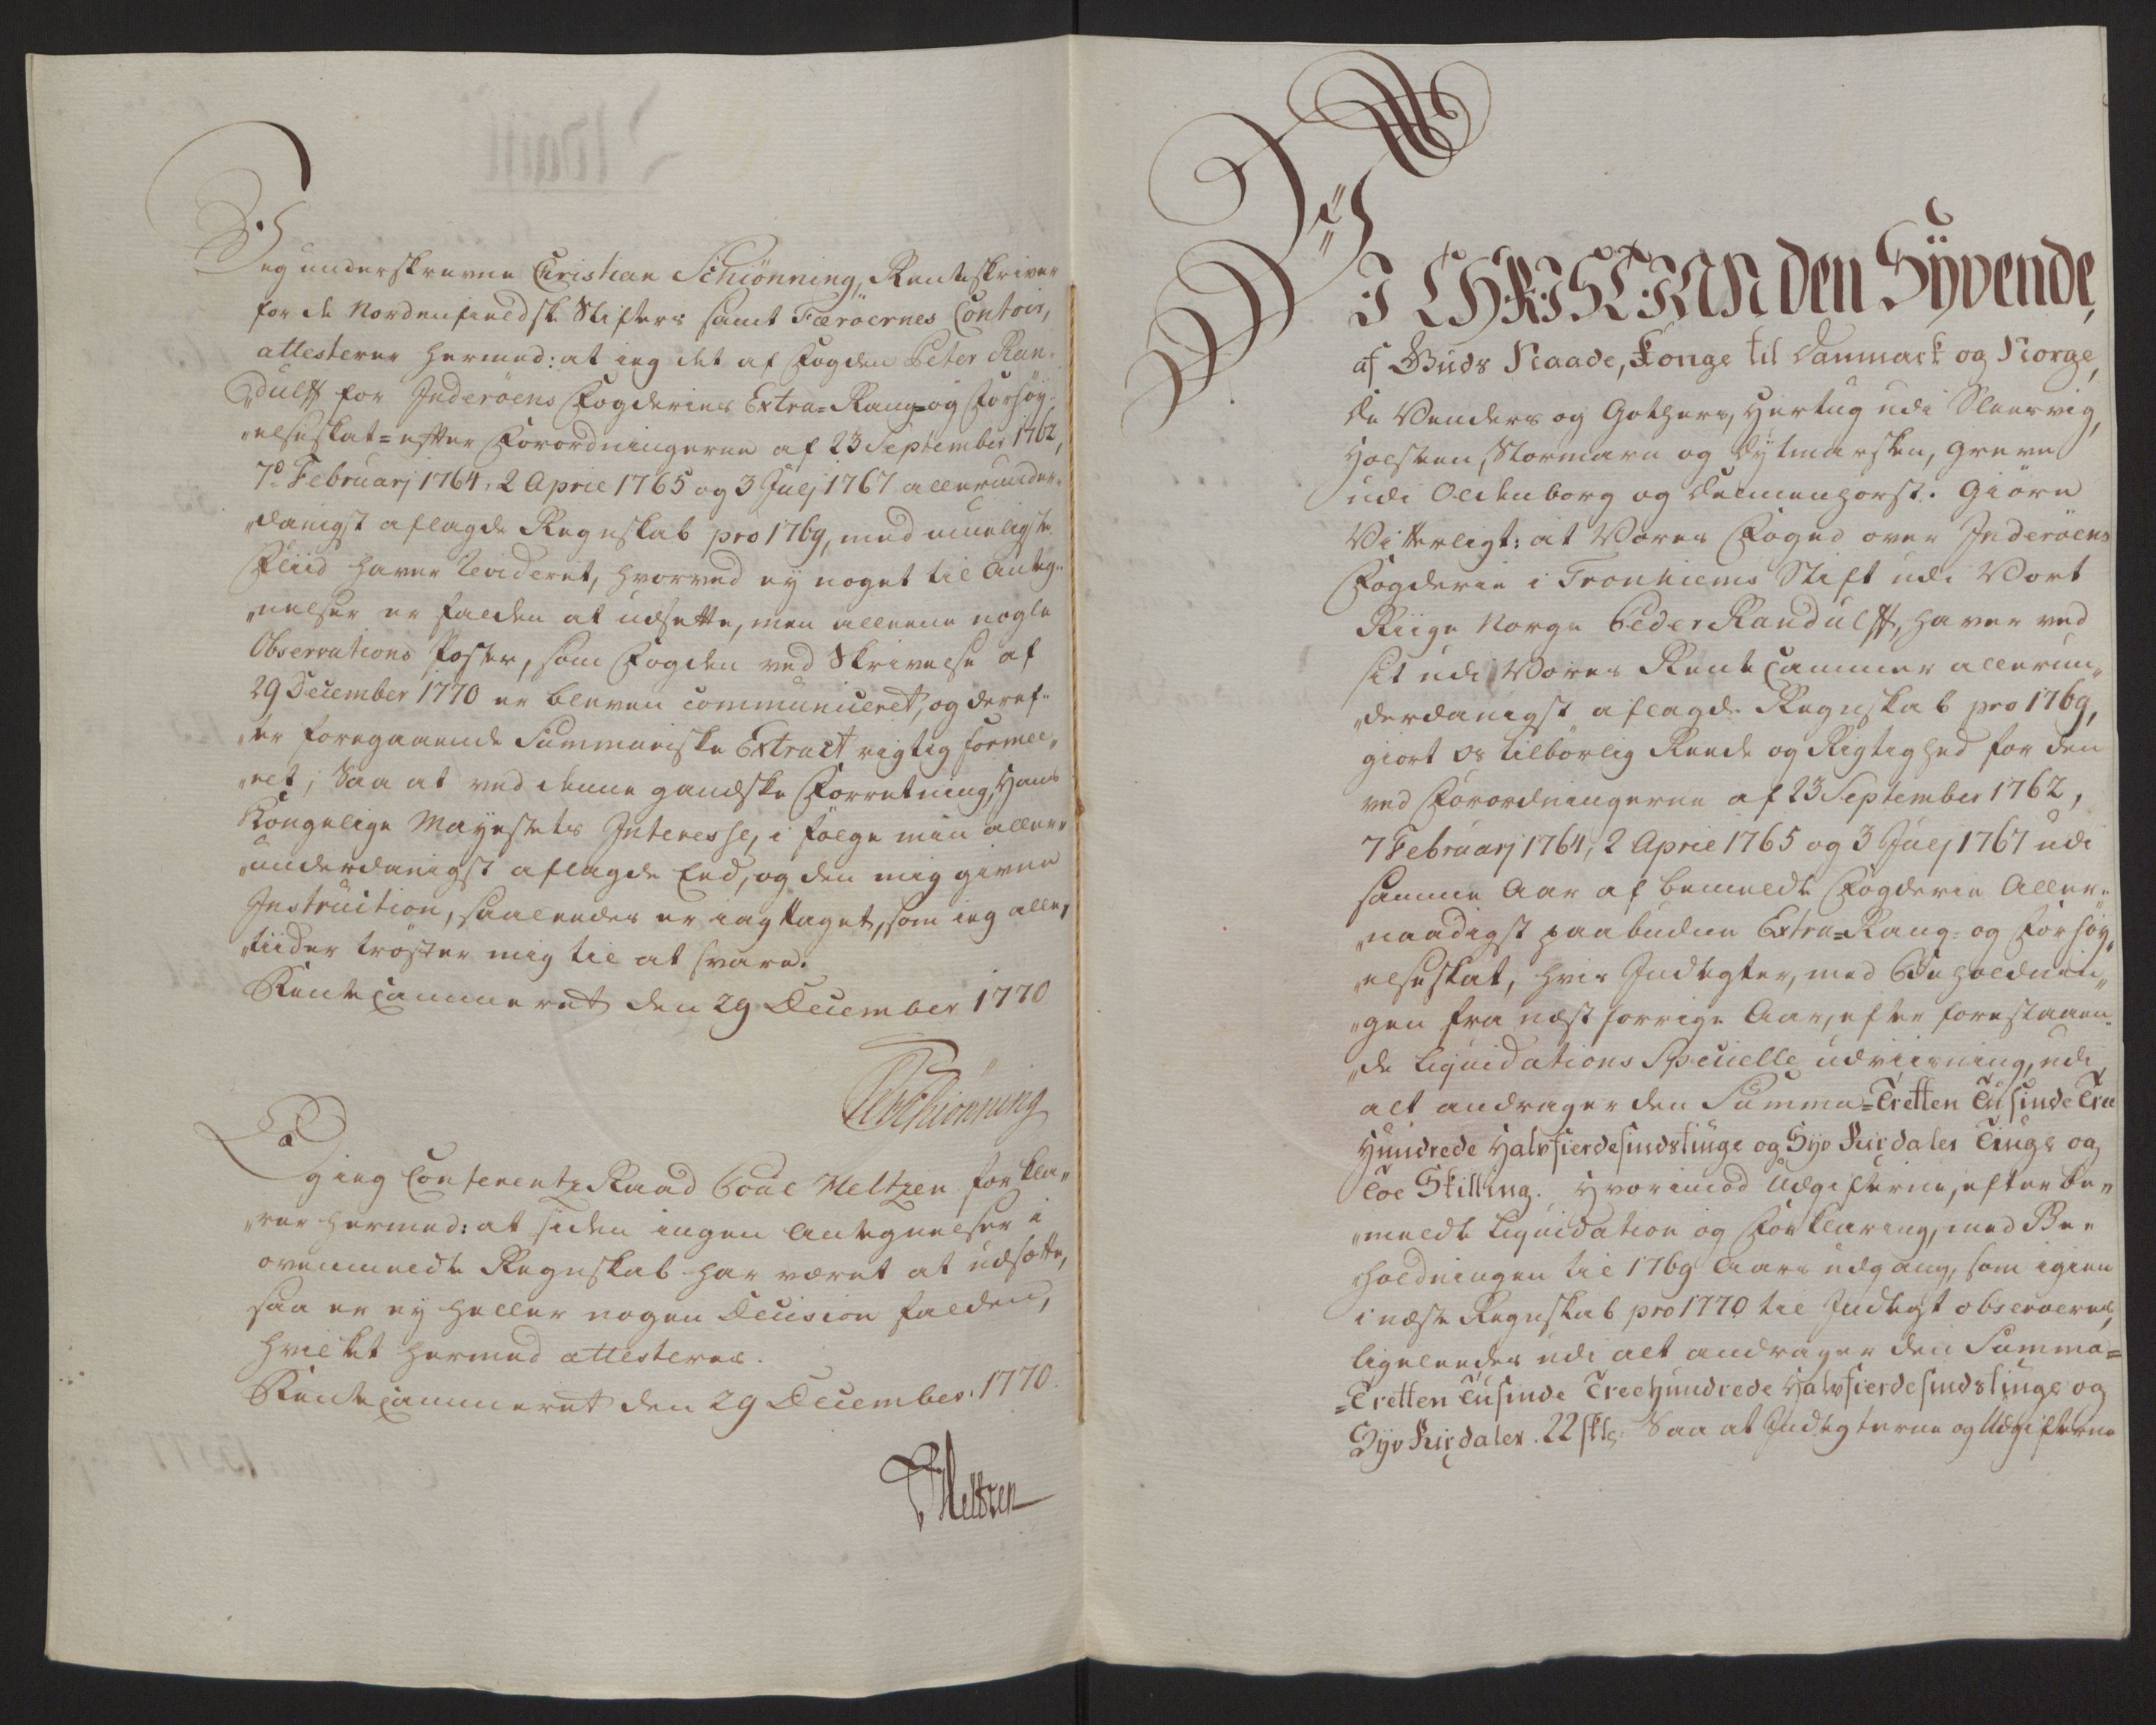 Jeg underskrevne Christian Schiönning, Renteskriver
for de Nordenfieldske Stifters samt Færöernes Contoir,
attesterer hermed: at jeg det af Fogden Peter Ran-
"dulff for Inderöens Fogderies Extra-Rang- og Forhöy-
"elseskat- efter Forordningerne af 23 September 1762,
7de Februarj 1764, 2 April 1765 og 3 Julj 1767 allerunder-
"danigst aflagde Regnskab pro 1769, med mueligste
Fliid haver revideret, hvorved ey noget til Anteg-
"nelser er falden at udsette, men alleene nogle
Observations Poster, som Fogden ved Skrivelse af
29 December 1770 er bleven communiceret, og deref-
"ter foregaaende Summariske Extract rigtig formee-
"ret; Saa at ved denne gandske Forretning, Hans
Kongelige Mayestets Interesse, i fölge min aller-
"underdanigst aflagde Eed, og den mig givne
Instruction, saaledes er iagttaget, som jeg alle-
"tiider tröster mig til at svare.
Rentecammeret den 29 December 1770
CSchiönning
Og jeg Conferentz Raad Poul Meltzen forkla-
"rer hermed: at siden ingen Antegnelser i
ovenmeldte Regnskab har været at udsætte,
saa er ey heller nogen Decision falden,
hvilket hermed attesteres.
Rentecammeret den 29 December 1770.
PMeltzen
Vi CHRISTIAN den Syvende,
af Guds Naade, Konge til Danmark og Norge,
de Venders og Gothers, Hertug udi Sleesvig,
Holsteen, Stormarn og Dytmarsken, Greve
udi Oldenborg og Delmenhorst. Giöre
Vitterligt: at Vores Foged over Inderöens
Fogderie i Tronhiems Stift udi Vort
Riige Norge Peder Randulff, haver ved
sit udi Vores Rente Cammer allerun-
"derdanigst aflagde Regnskab pro 1769,
giort Os tilbörlig Reede og Rigtighed for den
ved Forordningerne af 23 September 1762,
7 Februarj 1764, 2 April 1765 og 3 Julj 1767 udi
samme Aar af bemeldte Fogderie Aller-
"naadigst paabudne Extra-Rang- og Forhöy-
"elseskat, hvis Indtegter, med Beholdnin-
"gen fra næstforrige Aar, efter forestaaen-
"de Liquidations Specielle udviisning, udi
alt andrager den Summa-Tretten Tusinde Tree
Hundrede Halvfierdesindstiuge og Syv Rixdaler Tiuge og
Toe Skilling. Hvorimod Udgifterne, efter be-
"meldte Liquidation og Forklaring, med Be-
"holdningen til 1769 Aars udgang, som igien
i næste Regnskab pro 1770 til Indtegt observeres,
ligeledes udi alt andrager den Summa=
=Tretten Tusinde Tree Hundrede Halvfierdesindstiuge og
Syv Rixdaler 22 skl. Saa at Indtegterne og Udgifterne